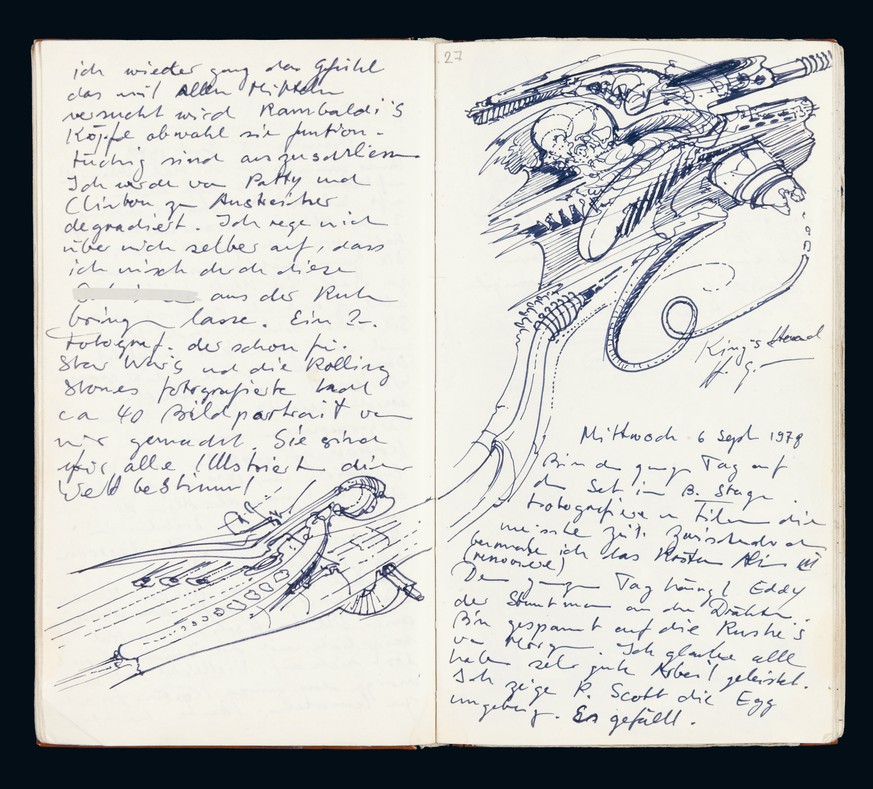 ich wieder ganz das Gefühl
das mit allen Mitteln
versucht wird Rambaldi's
Köpfe obwohl sie funtion-
tüchig sind auszuschliessen
Ich werde von Patty und
Clinton zu Anstreicher
degradiert. Ich rege mich
über mich selber auf, dass
ich mich durch diese
aus der Ruhe
bringen lasse. Ein
Fotograf. der schon für
Star Wars und die Rolling
Stones fotografierte hat
ca 40 Bildportrait von
mir gemacht. Sie sind
für alle Illustrierten dieser
Welt bestimmt
27
King's Head
H. G.
Mittwoch 6 Sept 1978
Bin den ganzen Tag auf
den Set im B. Stage.
Fotografiere u filme die
meiste Zeit. Zwischendurch
bemale ich das Kostüm
(renoviere)
Den ganzen Tag hängt Eddy
der Stuntman an den Drähten.
Bin gespannt auf die Rushe's
von Morgen. Ich glaube alle
haben sehr gute Arbeit geleistet.
Ich zeige R. Scott die Egg
umgebung. Es gefällt.